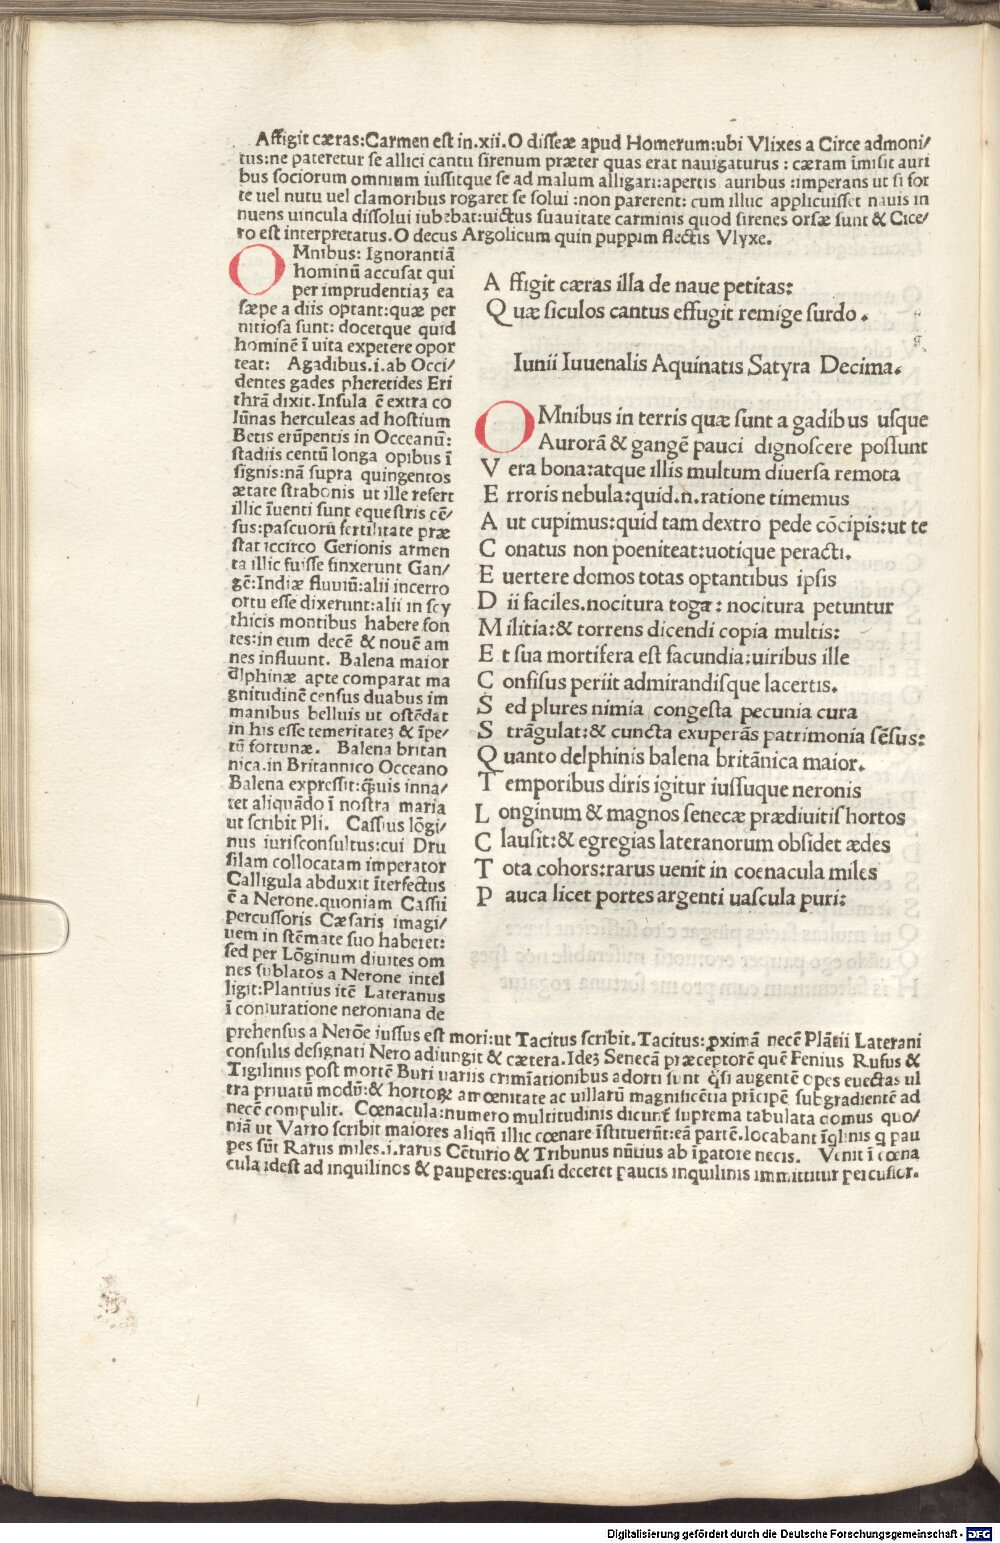 Affigit cæras:Carmen est in.xii.O disseæ apud Homerum:ubi Vlixes a Circe admoni/
tus:ne pateretur se allici cantu sirenum præter quas erat nauigaturus : cæram īmisit auri
bus sociorum omnium iussitque se ad malum alligari:apertis auribus :imperans ut si for
te uel nutu uel clamoribus rogaret se solui :non parerent: cum illuc applicuisset nauis in
nuens uincula dissolui iubebat:uictus suauitate carminis quod sirenes orsæ sunt & Cice/
ro est interpretatus.O decus Argolicum quin puppim flectis Vlyxe.
OMnibus: Ignorantiā
hominū accusat qui
per imprudentiaȝ ea
sæpe a diis optant:quæ per
nitiosa sunt: docetque quid
hominē ī uita expetere opor
teat: Agadibus.i.ab Occi/
dentes gades pheretides Eri
thrā dixit.Insula ē extra co
lūnas herculeas ad hostium
Betis erūpentis in Occeanū:
stadiis centū longa opibus ī
signis:nā supra quingentos
ætate strabonis ut ille refert
illic īuenti sunt equestris cē/
sus:pascuorū fertilitate præ
stat iccirco Gerionis armen
ta illic fuisse finxerunt Gan/
gē:Indiæ fluuiū:alii incerro
ortu esse dixerunt:alii in scy
thicis montibus habere fon
tes:in eum decē & nouē am
nes influunt. Balena maior
dlphinæ apte comparat ma
gnitudinē census duabus im
manibus belluis ut ostēdat
in his esse temeritateȝ & īpe/
tū fortunæ. Balena britan
nica.in Britannico Occeano
Balena expressit:q̄uis inna/
tet aliquādo ī nostra maria
ut scribit Pli. Cassius lōgi/
nus iurisconsultus:cui Dru
silam collocatam imperator
Calligula abduxit īterfectus
ē a Nerone.quoniam Cassii
percussoris Cæsaris imagi/
uem in stēmate suo haberet:
sed per Lōginum diuites om
nes sublatos a Nerone intel
ligit:Plantius itē Lateranus
ī coniuratione neroniana de
prehensus a Nerōe iussus est mori:ut Tacitus scribit.Tacitus:ꝓximā necē Plātii Laterani
consulis designati Nero adiungit & cætera.Ideȝ Senecā præceptorē quē Fenius Rufus &
Tigilinus post mortē Buri uariis crimīationibus adorti sunt q̇si augentē opes euectas ul
tra priuatū modū:& hortoꝝ amœnitate ac uillarū magnificētia prīcipē subgradientē ad
necē compulit. Cœnacula:numero multitudinis dicunt̄ suprema tabulata domus quo/
niā ut Varro scribit maiores aliqn̄ illic cœnare īstituerūt:eā partē.locabant īqlinis q pau
pes sūt Rarus miles.i.rarus Cēturio & Tribunus nūtius ab īpatore necis. Venit ī cœna
cula:idest ad inquilinos & pauperes:quasi deceret paucis inquilinis immittitur percussor.
A ffigit cæras illa de naue petitas:
Q uæ siculos cantus effugit remige surdo .
Iunii Iuuenalis Aquinatis Satyra Decima.
OMnibus in terris quæ sunt a gadibus usque
Aurorā & gangē pauci dignoscere possunt
V era bona:atque illis multum diuersa remota
E rroris nebula:quid.n.ratione timemus
A ut cupimus:quid tam dextro pede cōcipis:ut te
C onatus non poeniteat:uotique peracti.
E uertere domos totas optantibus ipsis
D ii faciles.nocitura toga: nocitura petuntur
M ilitia:& torrens dicendi copia multis:
E t sua mortifera est facundia:uiribus ille
C onfisus periit admirandisque lacertis.
S ed plures nimia congesta pecunia cura
S trāgulat:& cuncta exuperās patrimonia sēsus:
Q uanto delphinis balena britānica maior.
T emporibus diris igitur iussuque neronis
L onginum & magnos senecæ prædiuitis hortos
C lausit:& egregias lateranorum obsidet ædes
T ota cohors:rarus uenit in coenacula miles
P auca licet portes argenti uascula puri:
Digitalisierung gefördert durch die Deutsche Forschungsgemeinschaft - DFG